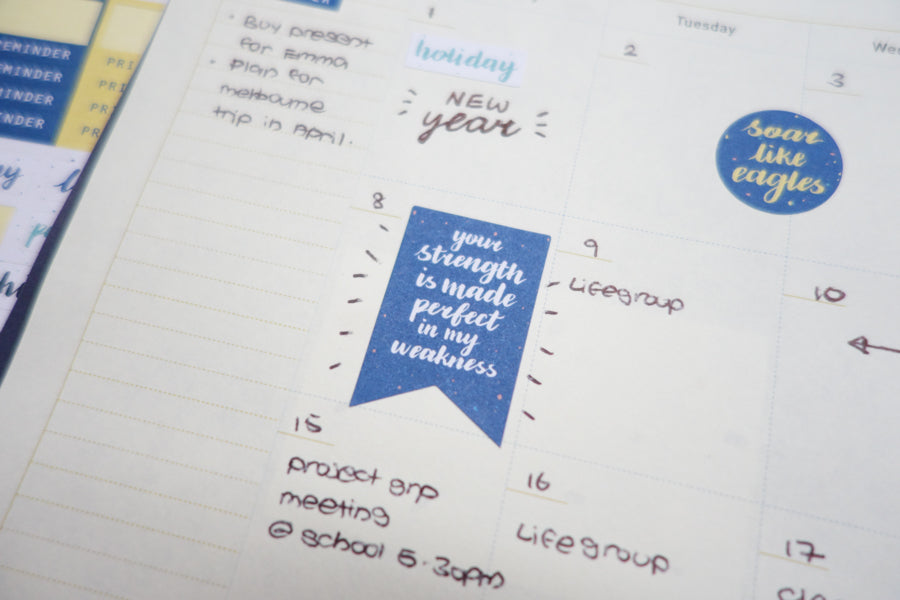 REMINDER
REMINDER
REMINDER
REMINDER
• Buy present
for Emma
• Plan for
melbourne
trip in April.
1
holiday
NEW
year
Tuesday
2
3
soar
like
eagles
8
your
strength
is made
perfect
in my
weakness
9
Lifegroup
10
15
project grp
meeting
@ school 5.30pm
16
Lifegroup
17